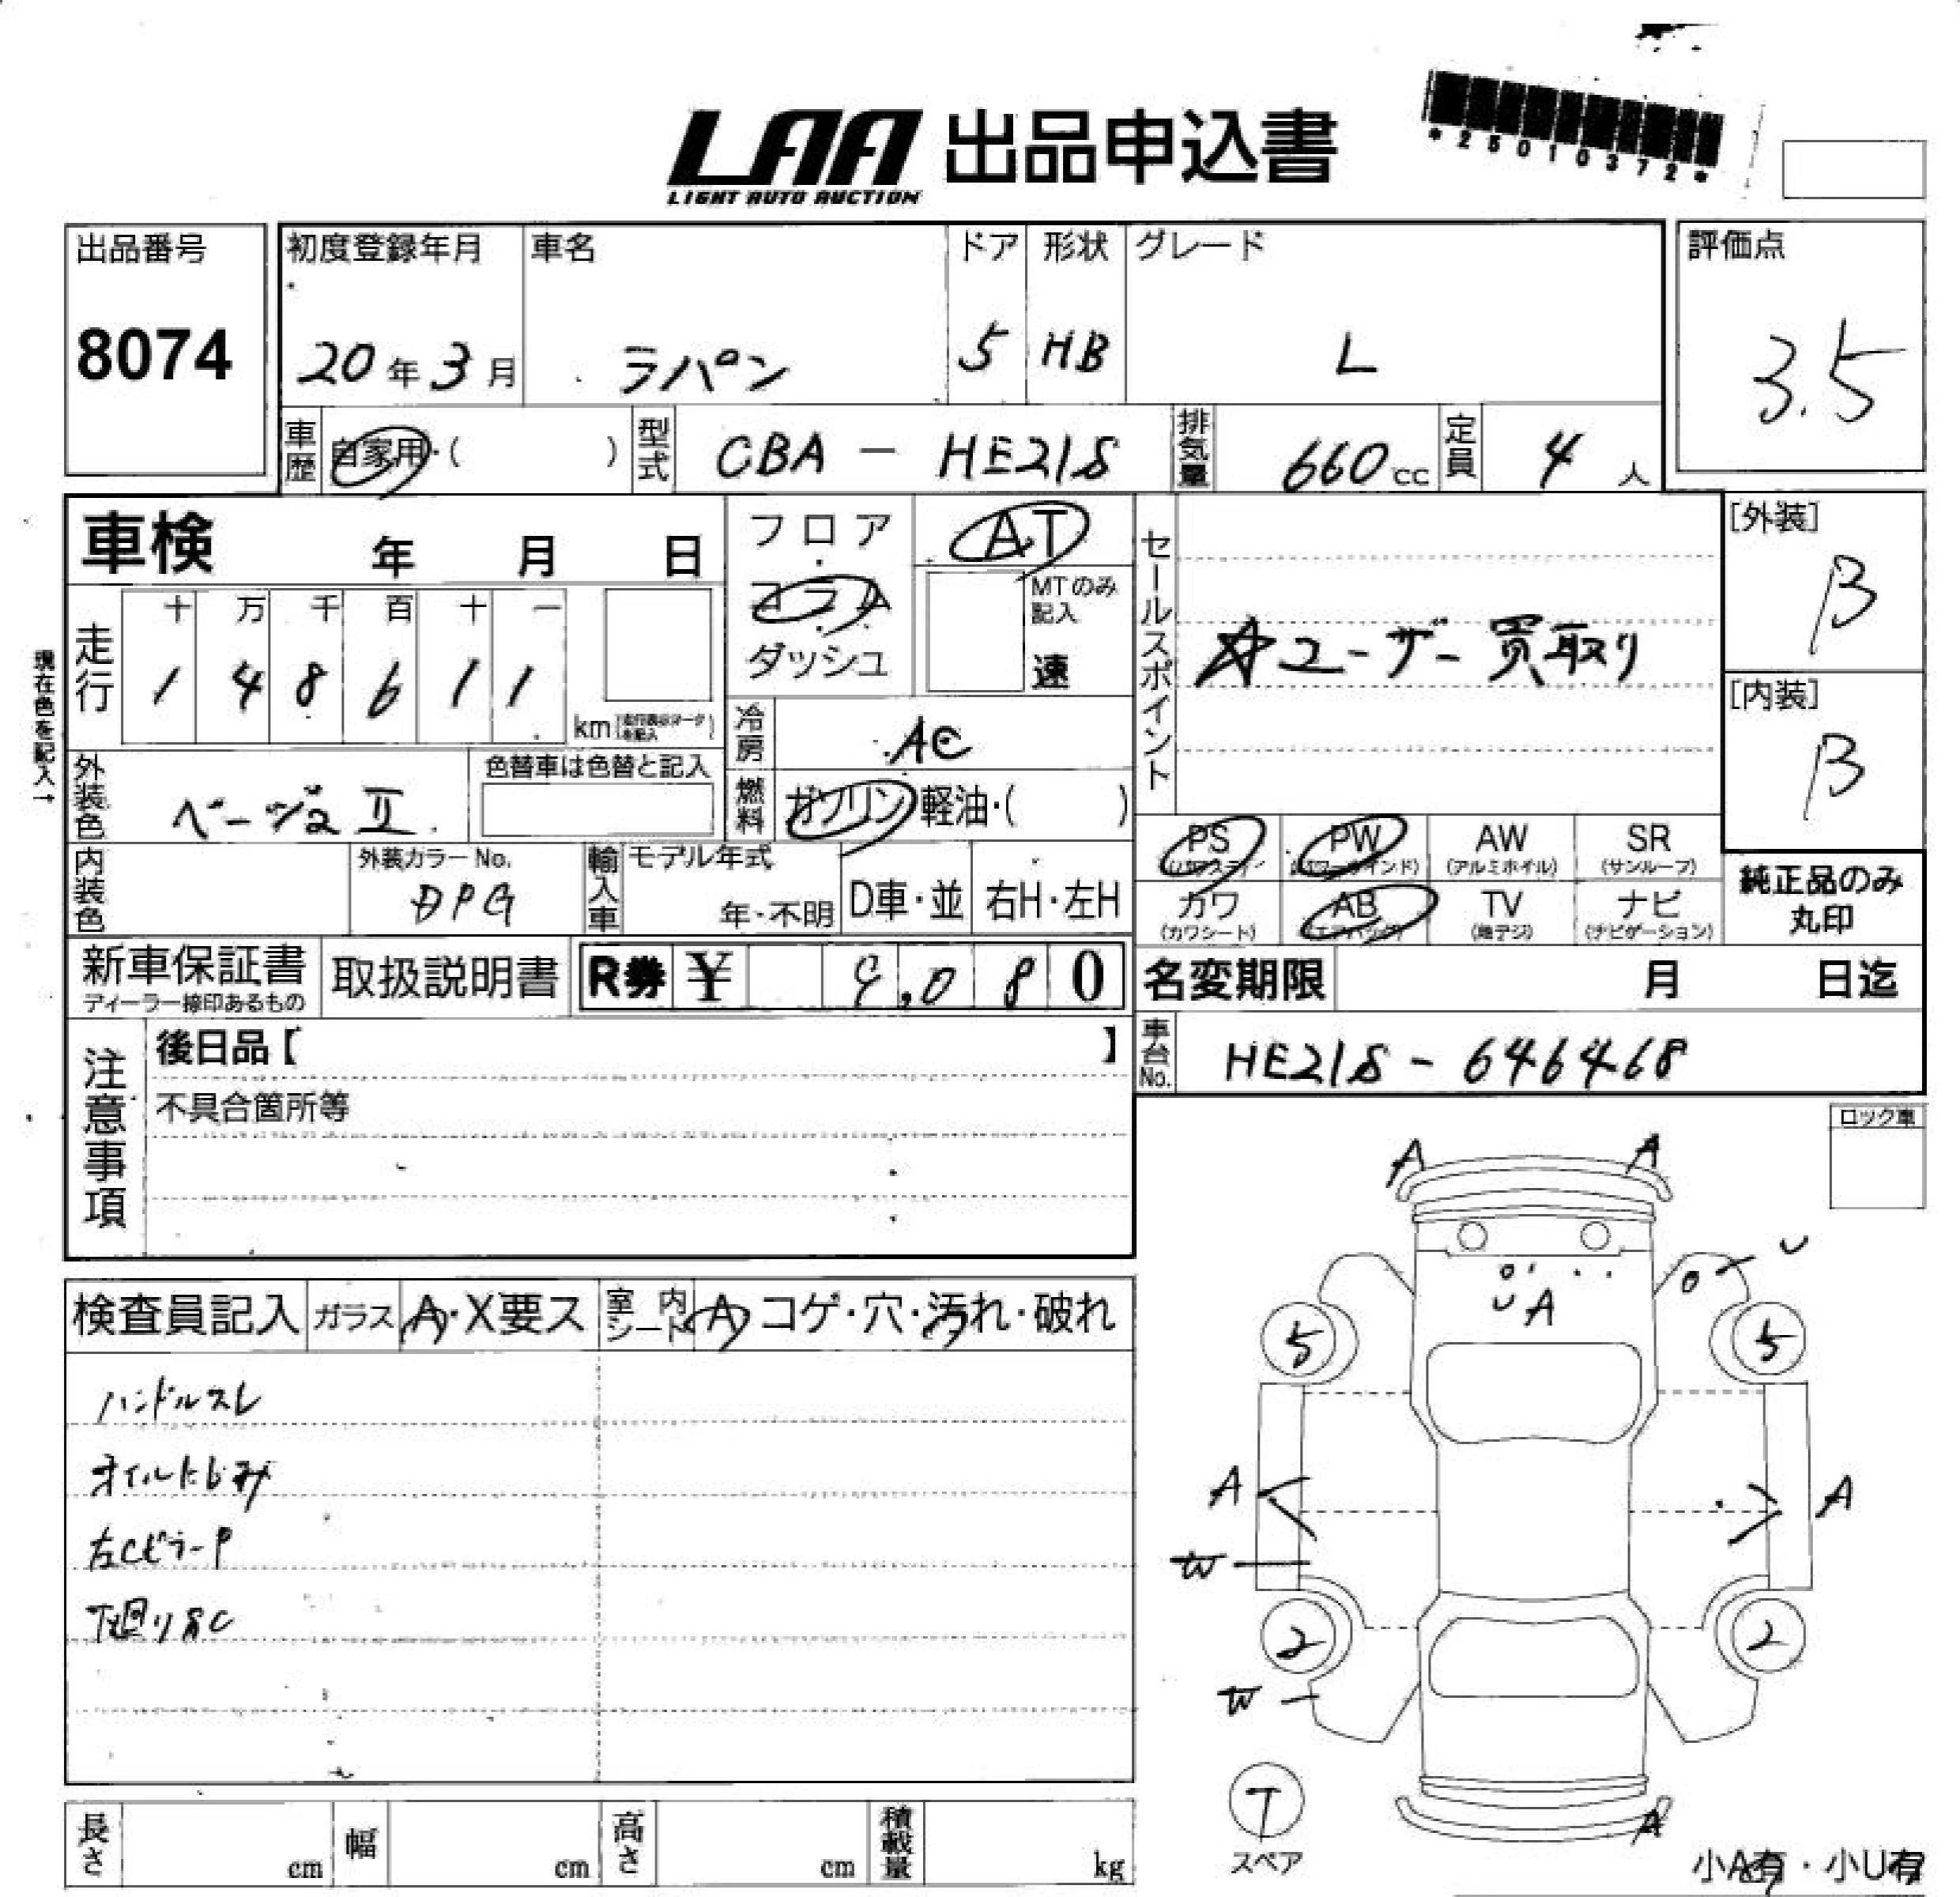 LAA 出品申込書
LIGHT AUTO AUCTION
*25010372*
出品番号
8074
初度登録年月
20年3月
車名
ラパン
ドア
5
形状
HB
グレード
L
評価点
3.5
車歴
自家用・( )
型式
CBA - HE21S
排気量
660cc
定員
4人
車検 年 月 日
フロア・コラム・ダッシュ
AT
MTのみ記入
速
セールスポイント
☆ユーザー買取り
[外装]
B
[内装]
B
現在色を記入→
走行
十 万 千 百 十 一
1 4 8 6 1 1
km
冷房
AC
外装色
ベージュⅡ
色替車は色替と記入
燃料
ガソリン・軽油・( )
PS
PW (パワーウインド)
AW (アルミホイル)
SR (サンルーフ)
内装色
外装カラーNo.
DPG
輸入車
モデル年式
年・不明
D車・並
右H・左H
カワ (カワシート)
AB (エアバッグ)
TV (地デジ)
ナビ (ナビゲーション)
純正品のみ丸印
新車保証書
ディーラー捺印あるもの
取扱説明書
R券 ¥ 9,080
名変期限 月 日迄
車台No.
HE21S - 646468
注意事項
後日品【 】
不具合箇所等
ロック車
検査員記入
ガラス A・X要ス
室内シート A コゲ・穴・汚れ・破れ
ハンドルスレ
オイルにじみ
左CピラーP
下廻りSC
A A
U
U A
5 5
A A
W
2 2
W
T
スペア
A
小A有・小U有
長さ cm
幅 cm
高さ cm
積載量 kg